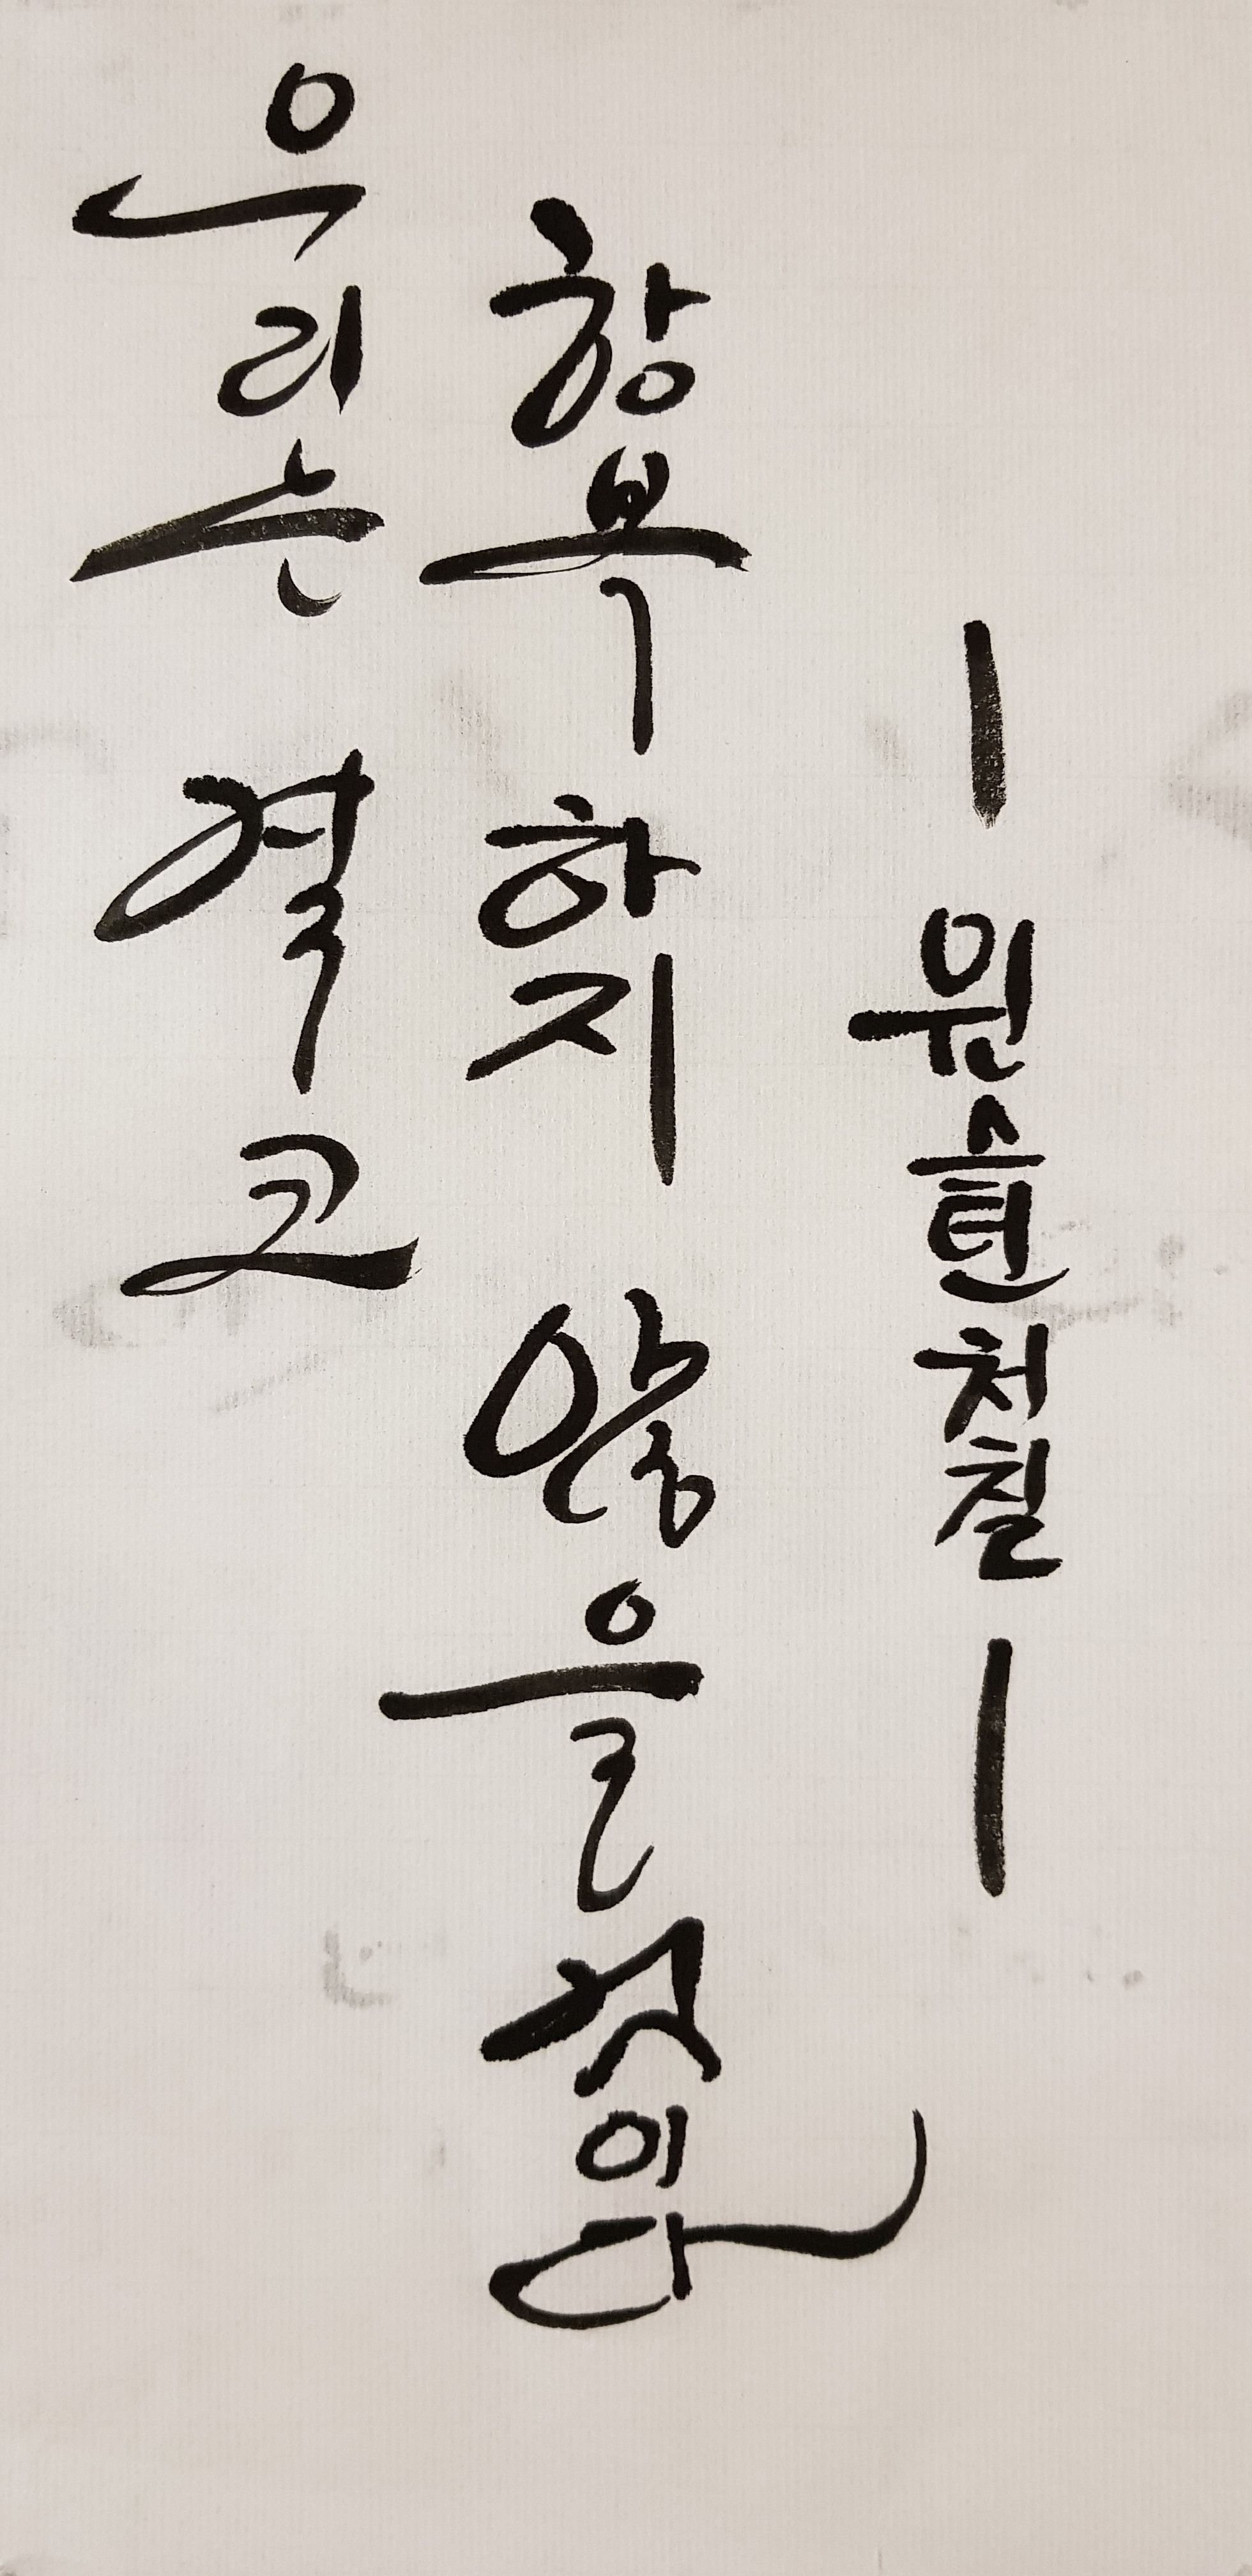 우리는 결코
항복하지 않을 것이다
- 윈스턴 처칠 -